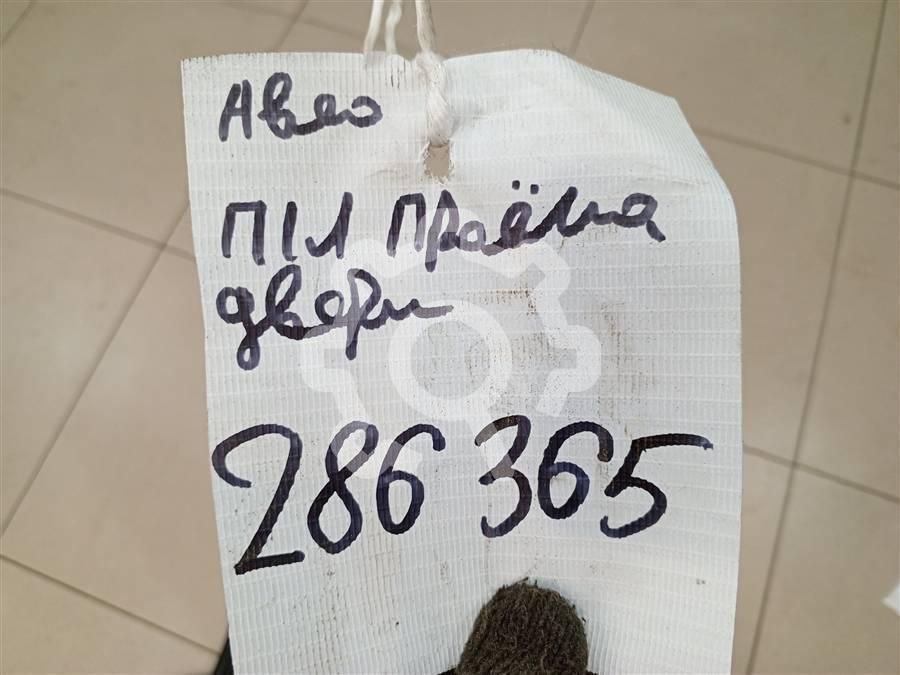 Авео
П/Л Проёма
двери
286 365